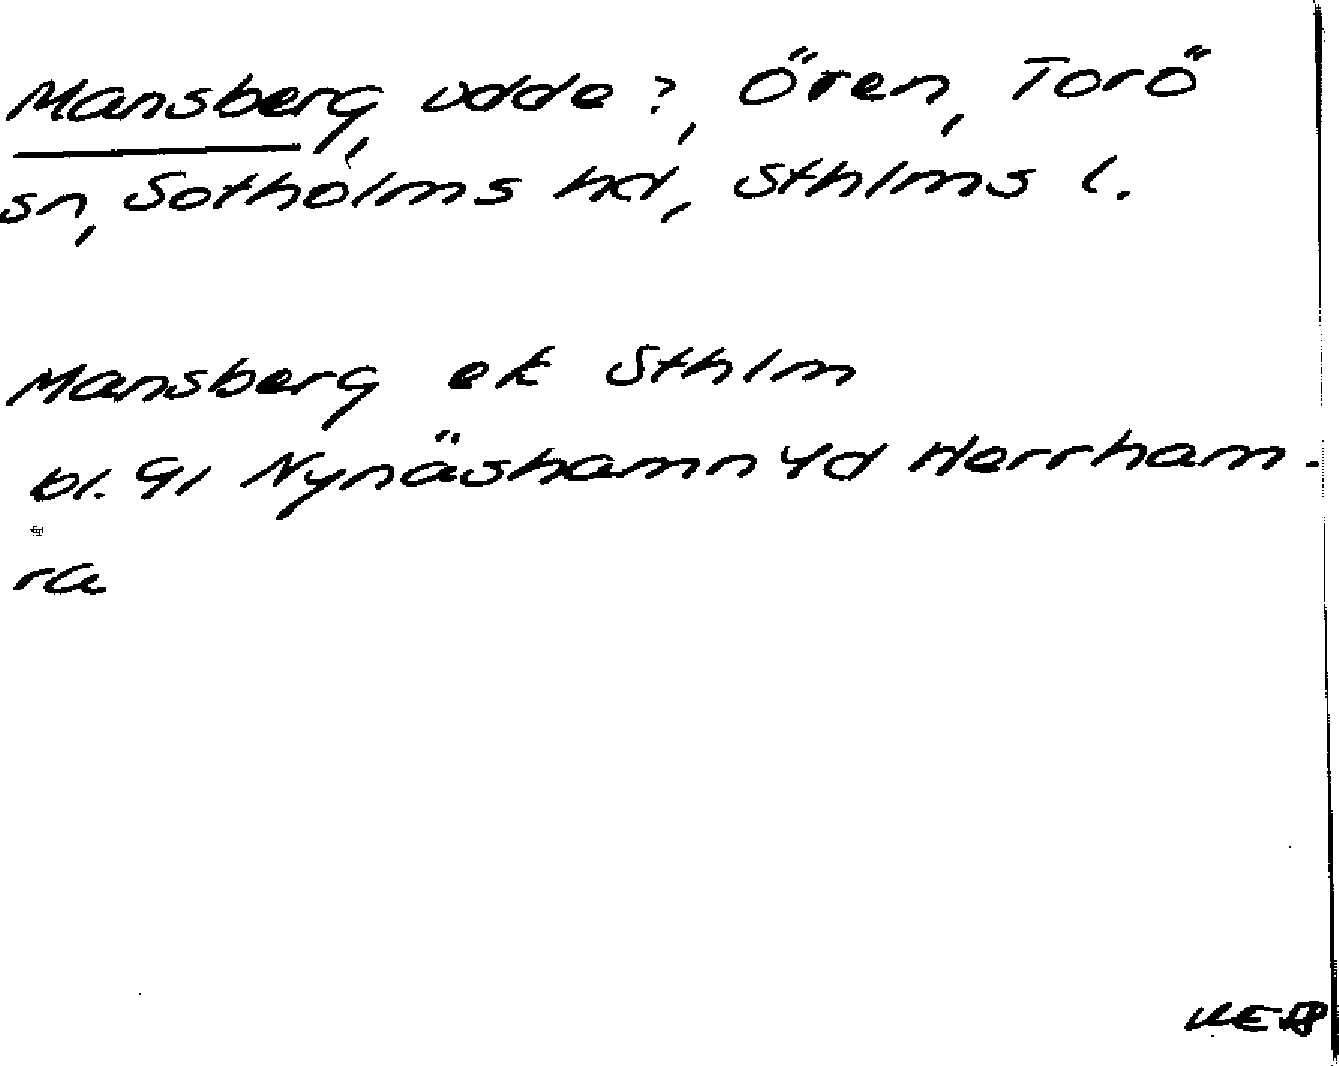 Mansberg, udde?, Ören, Torö
sn, Sotholms hd, Sthlms l.
Mansberg ek Sthlm
bl. 9I Nynäshamn 4d Herrham-
ra